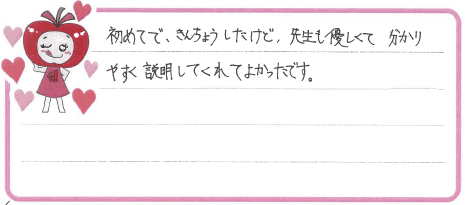 初めてで、きんちょうしたけど、先生も優しくて 分かり
やすく説明してくれてよかったです。